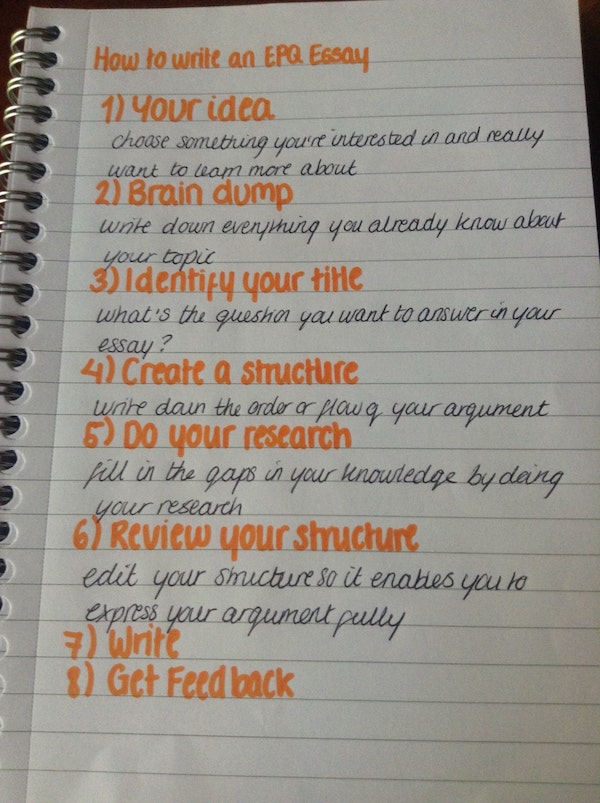 How to write an EPQ Essay
1) Your idea
choose something you're interested in and really
want to learn more about
2) Brain dump
write down everything you already know about
your topic
3) Identify your title
what's the question you want to answer in your
essay?
4) Create a structure
write down the order or flow of your argument
5) Do your research
fill in the gaps in your knowledge by doing
your research
6) Review your structure
edit your structure so it enables you to
express your argument fully
7) Write
8) Get Feedback